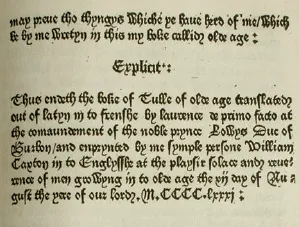 may preve tho thyngys Whiche ye have herd of me/Which
be by me Wretyn in this my boke callid olde age :
Explicit :
Thus endeth the boke of Tulle of olde age translated
out of latyn in to frenshe by laurence de primo facto at
the comaundement of the noble prynce Lowys Duc of
Burbon/and enprynted by me symple persone William
Caxton in to Englysshe at the playsir solace and reue-
rence of men growyng in to olde age the xij day of Au-
gust the yere of our lord. M.CCCC.lxxxj :